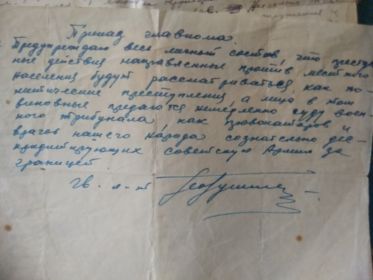 Приказ главкома
Предупреждаю весь личный состав, что преступ
ные действия направленные против местного
населения будут рассматриваться как по
литические преступления а лица в том
виновные предаются немедленно суду воен
ного трибунала, как провокаторов и
врагов нашего народа сознательно дис
кредитирующих советскую Армию за
границей
Гв. л-т